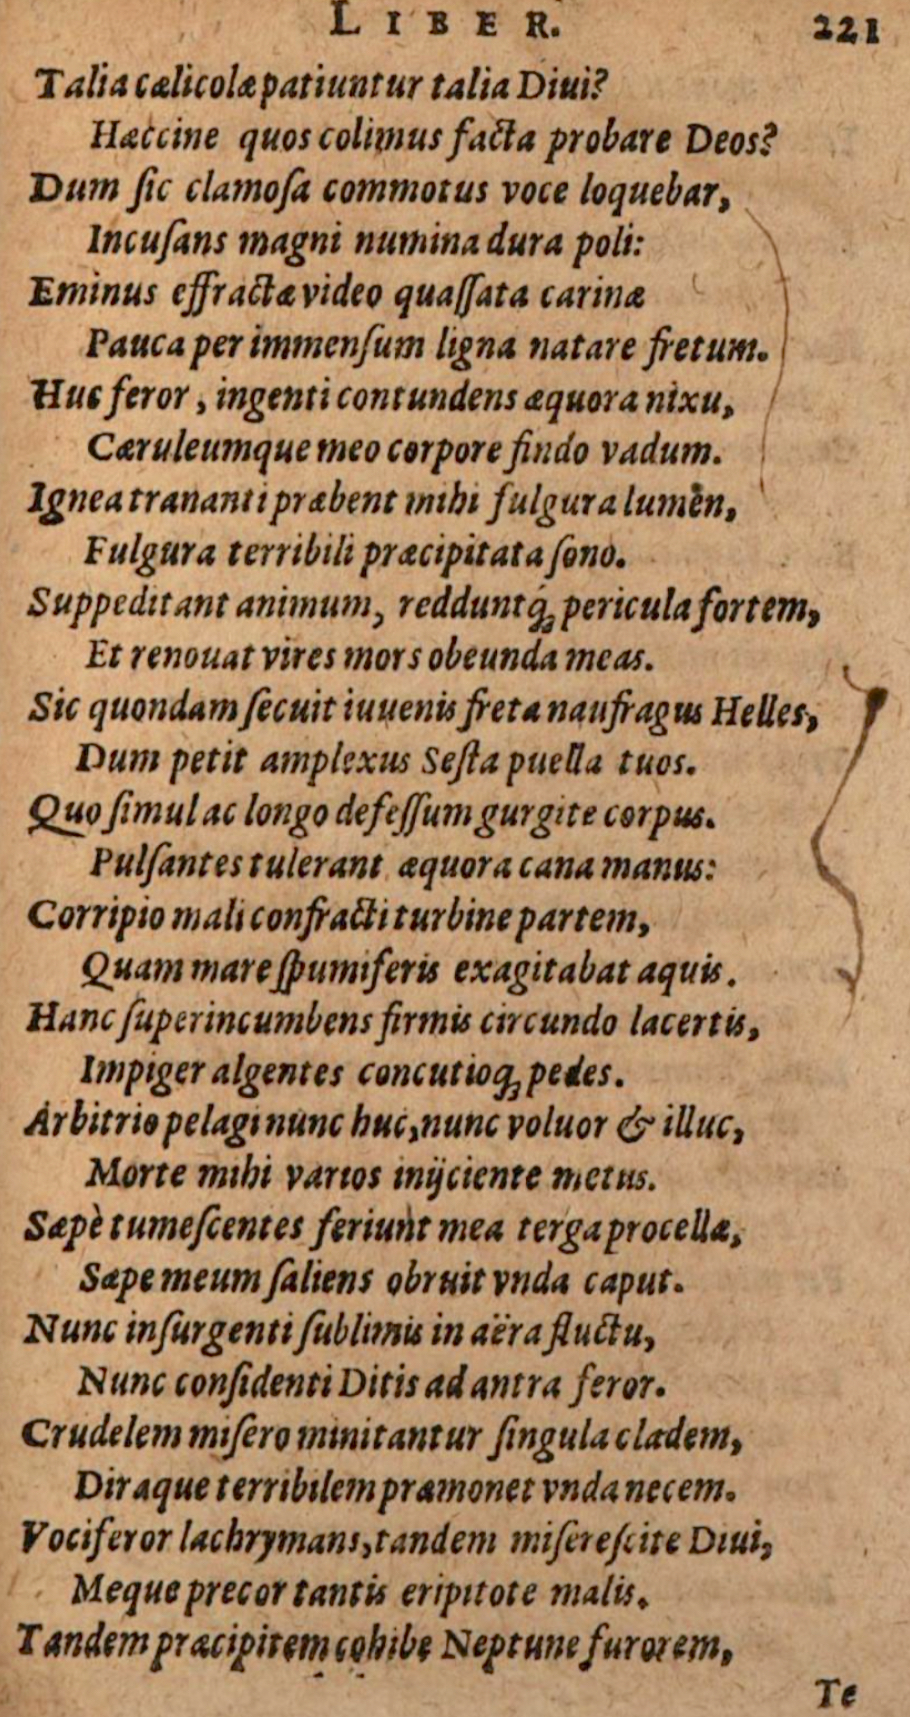 LIBER. 221
Talia cælicolæ patiuntur talia Diui?
Hæccine quos colimus facta probare Deos?
Dum ſic clamoſa commotus voce loquebar,
Incuſans magni numina dura poli:
Eminus effractæ video quaſſata carinæ
Pauca per immenſum ligna natare fretum.
Huc feror, ingenti contundens æquora nixu,
Cæruleumque meo corpore findo vadum.
Ignea trananti præbent mihi fulgura lumèn,
Fulgura terribili præcipitata ſono.
Suppeditant animum, redduntq́; pericula fortem,
Et renouat vires mors obeunda meas.
Sic quondam ſecuit iuuenis freta naufragus Helles,
Dum petit amplexus Seſta puella tuos.
Quo ſimul ac longo defeſſum gurgite corpus.
Pulſantes tulerant æquora cana manus:
Corripio mali confracti turbine partem,
Quam mare ſpumiferis exagitabat aquis.
Hanc ſuperincumbens firmis circundo lacertis,
Impiger algentes concutioq; pedes.
Arbitrio pelagi nunc huc, nunc voluor & illuc,
Morte mihi varios inijciente metus.
Sæpè tumeſcentes feriunt mea terga procellæ,
Sæpe meum ſaliens obruit vnda caput.
Nunc inſurgenti ſublimis in aëra fluctu,
Nunc conſidenti Ditis ad antra feror.
Crudelem miſero minitantur ſingula cladem,
Diraque terribilem præmonet vnda necem.
Vociferor lachrymans, tandem miſereſcite Diui,
Meque precor tantis eripitote malis.
Tandem præcipitem cohibe Neptune furorem,
Te